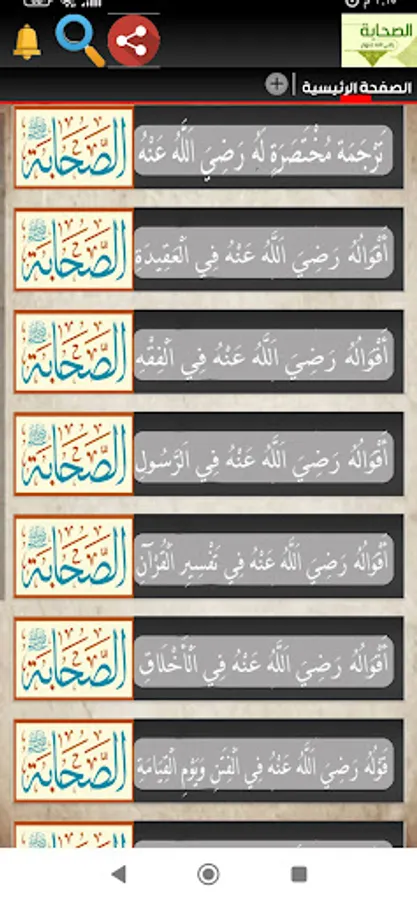 الصحابة
رضي الله عنهم
الصفحة الرئيسية
تَرْجَمَة مُخْتَصَرَةٍ لَهُ رَضِيَ اللَّهُ عَنْهُ
الصَّحَابَة
أَقْوَالُهُ رَضِيَ اللَّهُ عَنْهُ فِي الْعَقِيدَةِ
الصَّحَابَة
أَقْوَالُهُ رَضِيَ اللَّهُ عَنْهُ فِي الْفِقْهِ
الصَّحَابَة
أَقْوَالُهُ رَضِيَ اللَّهُ عَنْهُ فِي الرَّسُولِ
الصَّحَابَة
أَقْوَالُهُ رَضِيَ اللَّهُ عَنْهُ فِي تَفْسِيرِ الْقُرْآنِ
الصَّحَابَة
أَقْوَالُهُ رَضِيَ اللَّهُ عَنْهُ فِي الْأَخْلَاقِ
الصَّحَابَة
قَوْلُهُ رَضِيَ اللَّهُ عَنْهُ فِي الْفِتَنِ وَيَوْمِ الْقِيَامَة
الصَّحَابَة